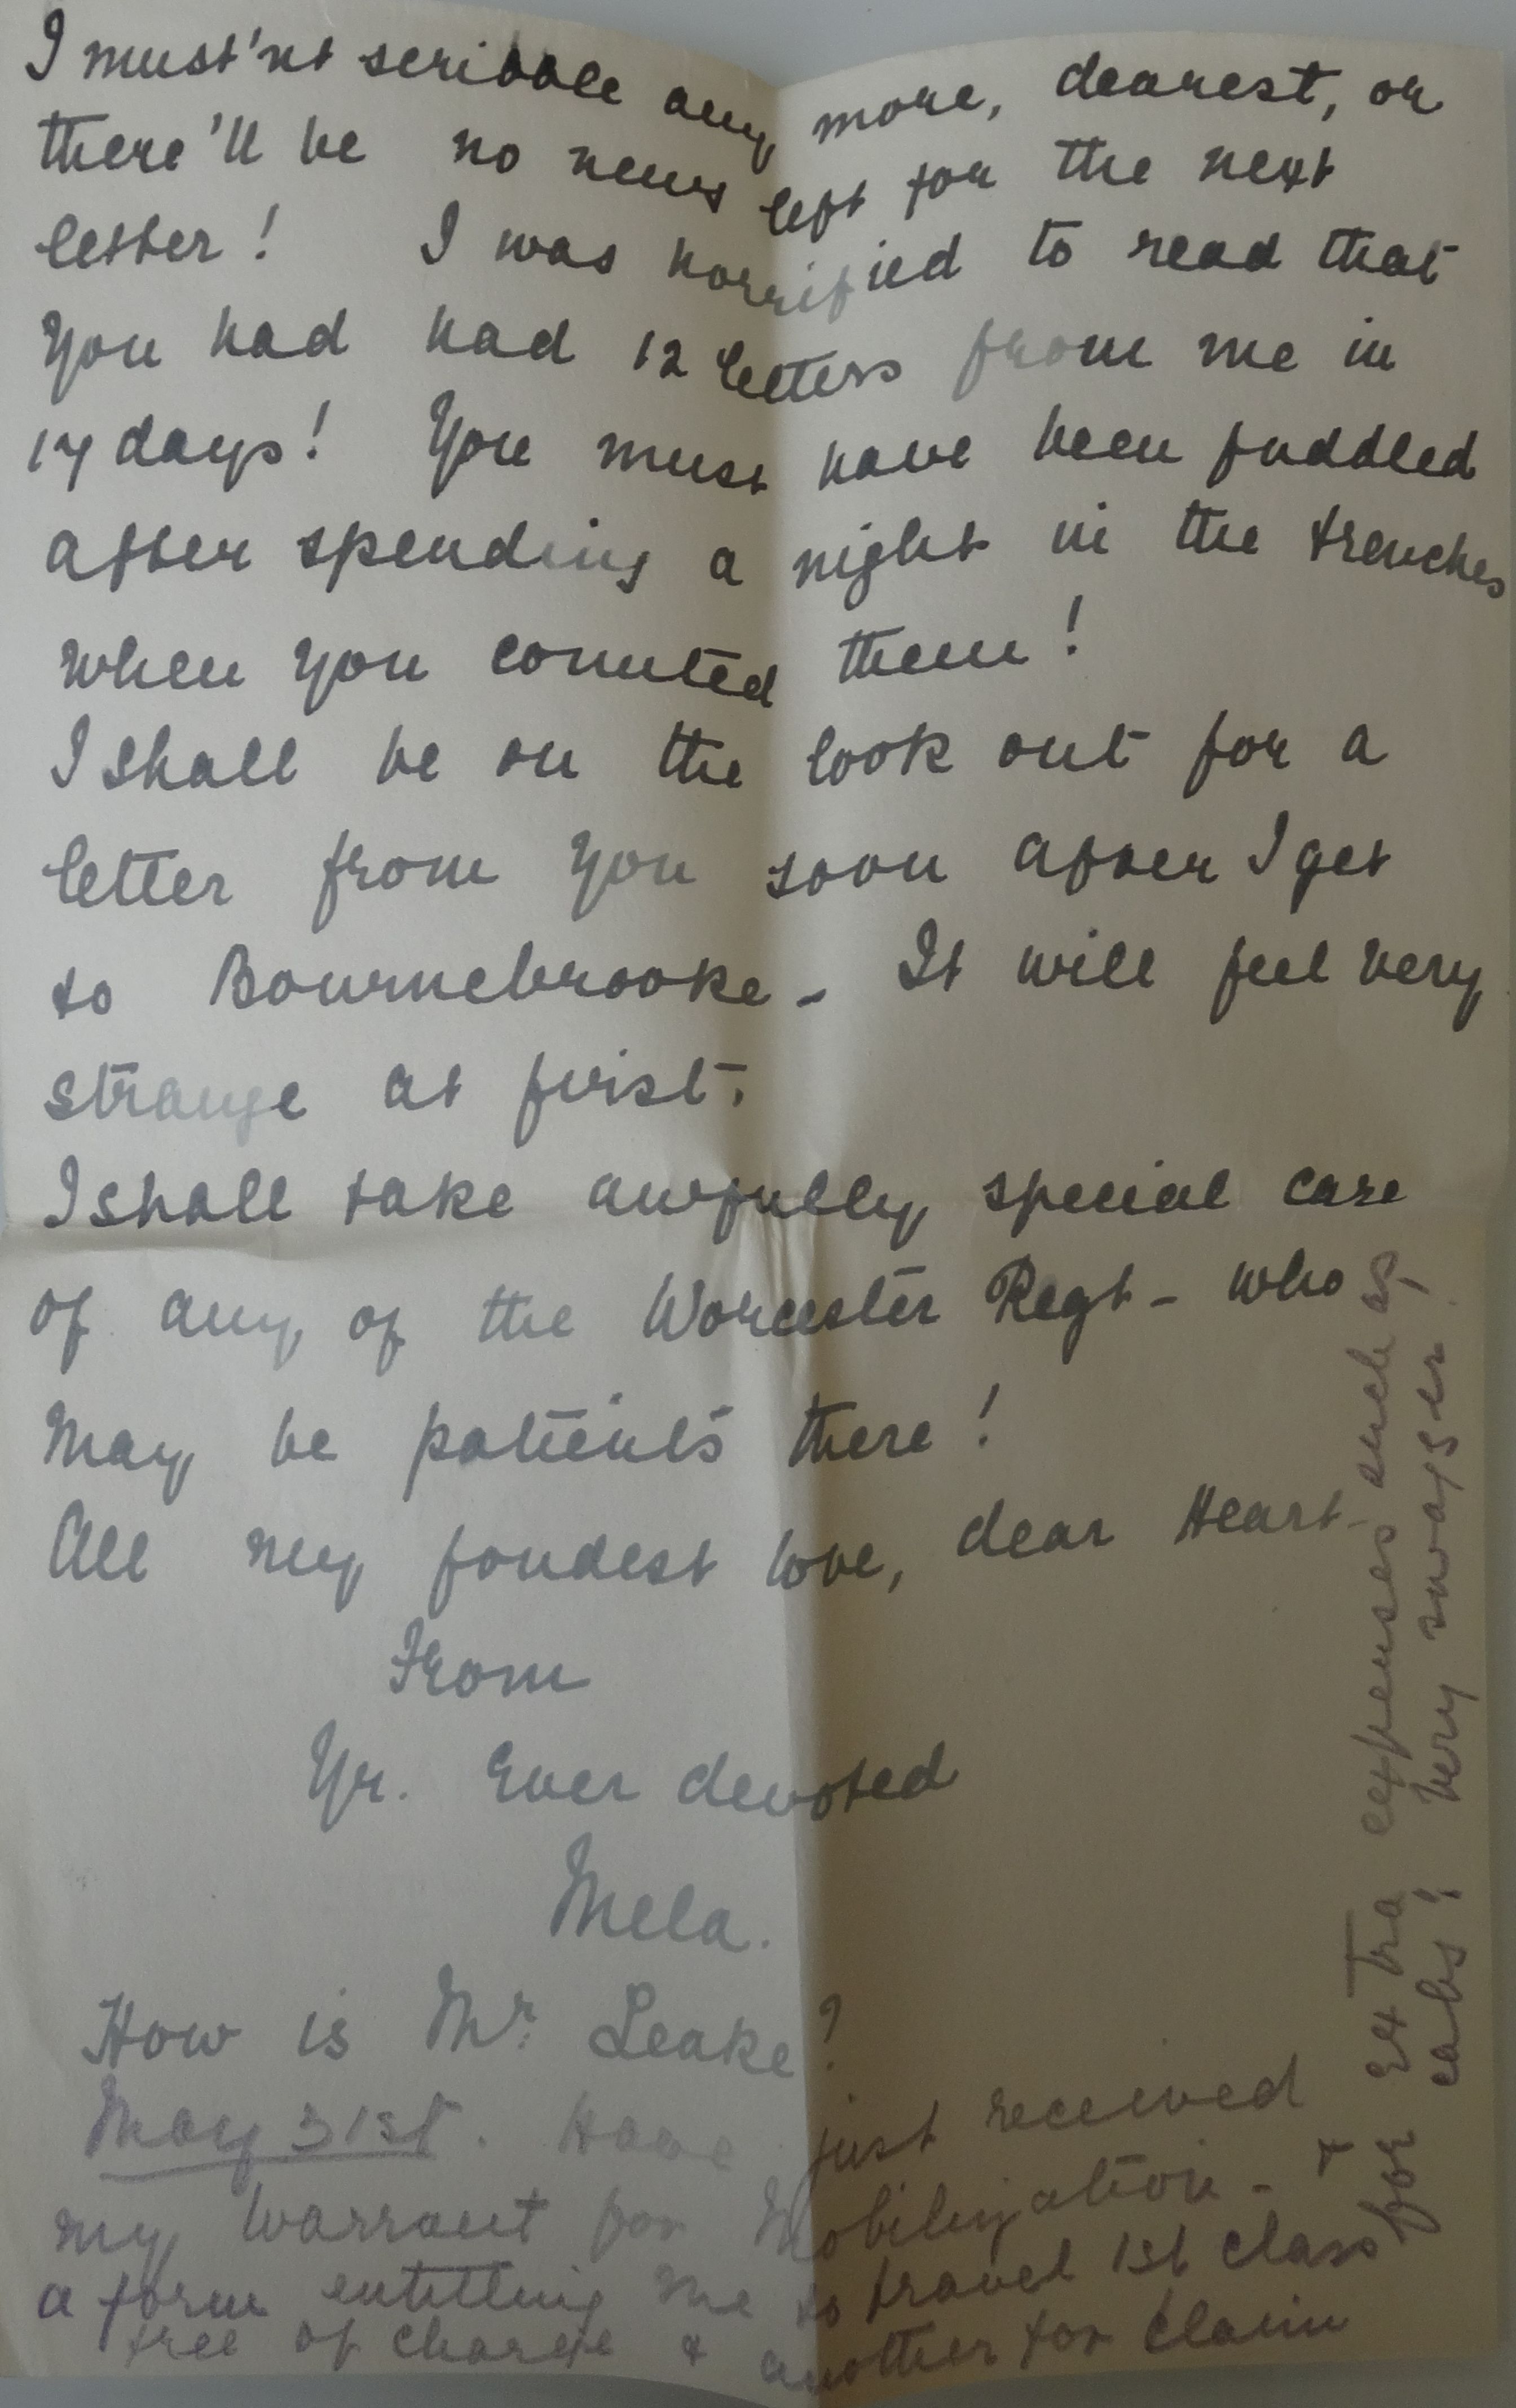 I must'nt scribble any more, dearest, or
there'll be no news left for the next
letter! I was horrified to read that
you had had 12 letters from me in
17 days! You must have been fuddled
after spending a night in the trenches
when you counted them!
I shall be on the look out for a
letter from you soon after I get
to Bournebrooke - It will feel very
strange at first.
I shall take awfully special care
of any of the Worcester Regt - who
may be patients there!
All my fondest love, dear Heart -
From
Yr. Ever devoted
Mela.
How is Mr. Leake?
May 31st. Have just received
my warrant for Mobilization - &
a form entitling me to travel 1st class
free of charge & another for claim
for Extra expenses such as
cabs! very swagger